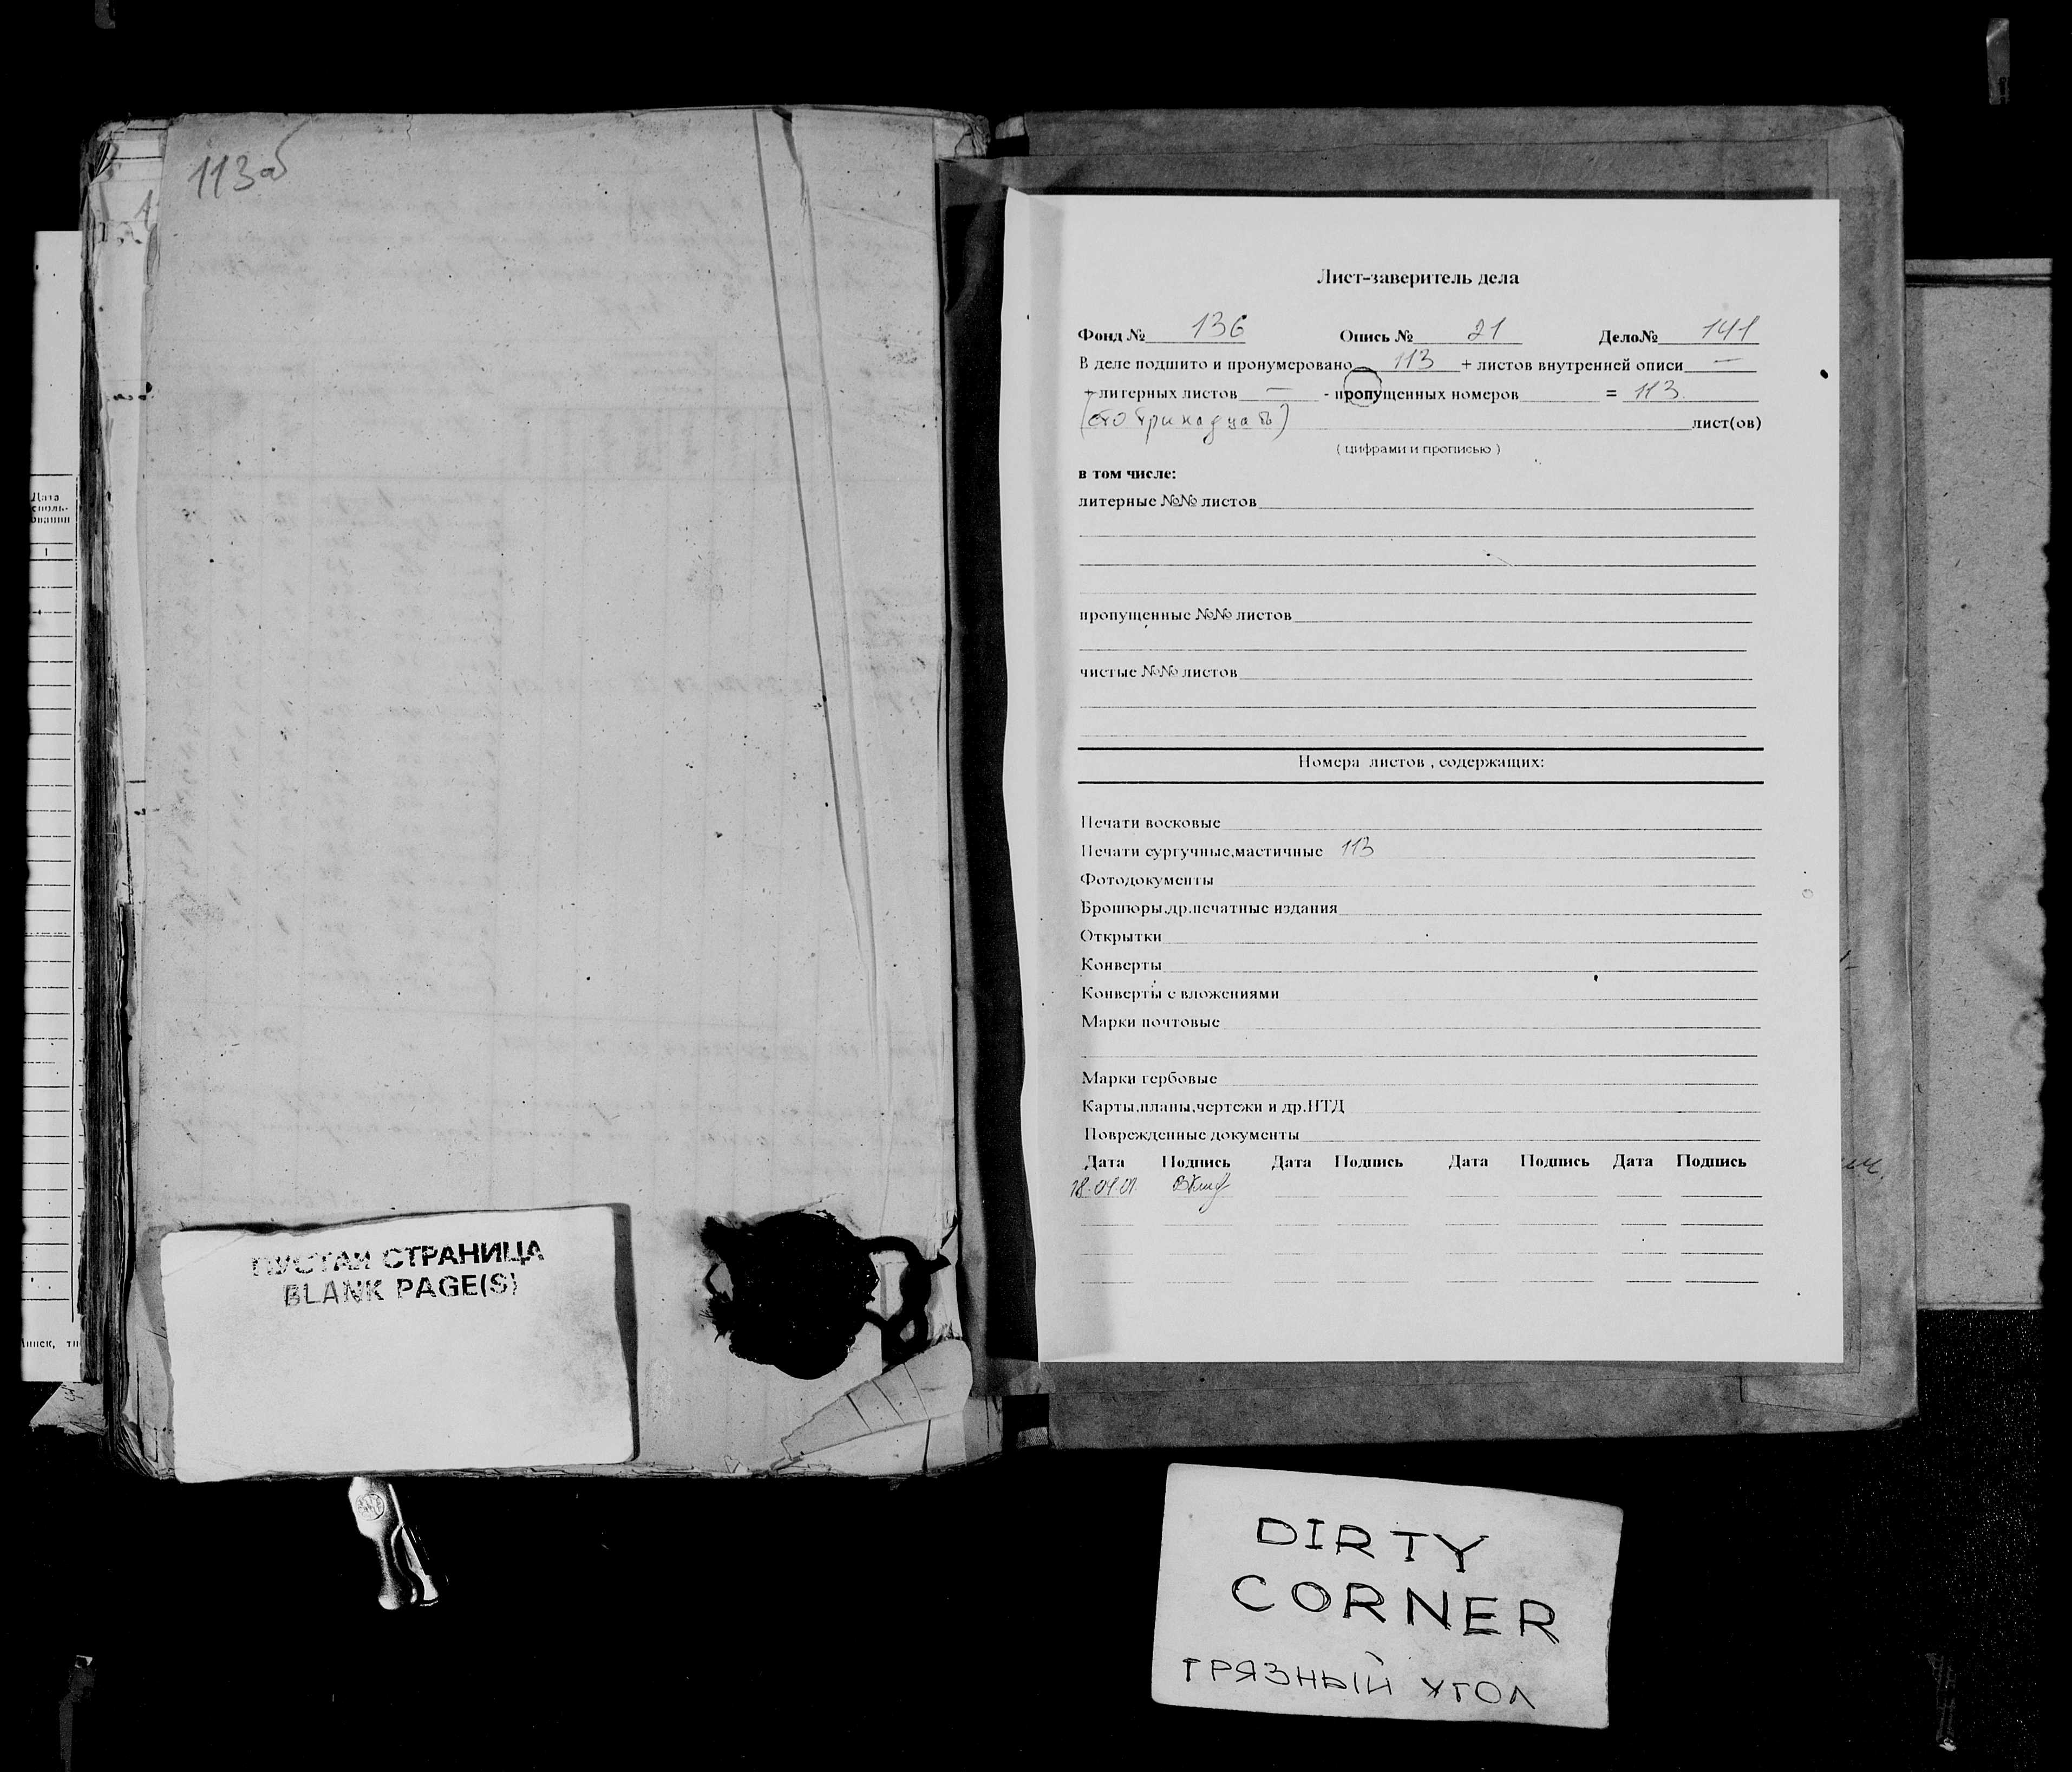 113об
Дата
исполь-
зования
1
Минск, ти
ПУСТАЯ СТРАНИЦА
BLANK PAGE(S)
Лист-заверитель дела
Фонд № 136 Опись № 21 Дело№ 141
В деле подшито и пронумеровано 113 + листов внутренней описи —
+ литерных листов — - пропущенных номеров = 113
(сто тринадцать) лист(ов)
( цифрами и прописью )
в том числе:
литерные №№ листов
пропущенные №№ листов
чистые №№ листов
Номера листов , содержащих:
Печати восковые
Печати сургучные,мастичные 113
Фотодокументы
Брошюры,др.печатные издания
Открытки
Конверты
Конверты с вложениями
Марки почтовые
Марки гербовые
Карты,планы,чертежи и др.НТД
Поврежденные документы
Дата Подпись Дата Подпись Дата Подпись Дата Подпись
18.04.01
DIRTY
CORNER
ГРЯЗНЫЙ УГОЛ